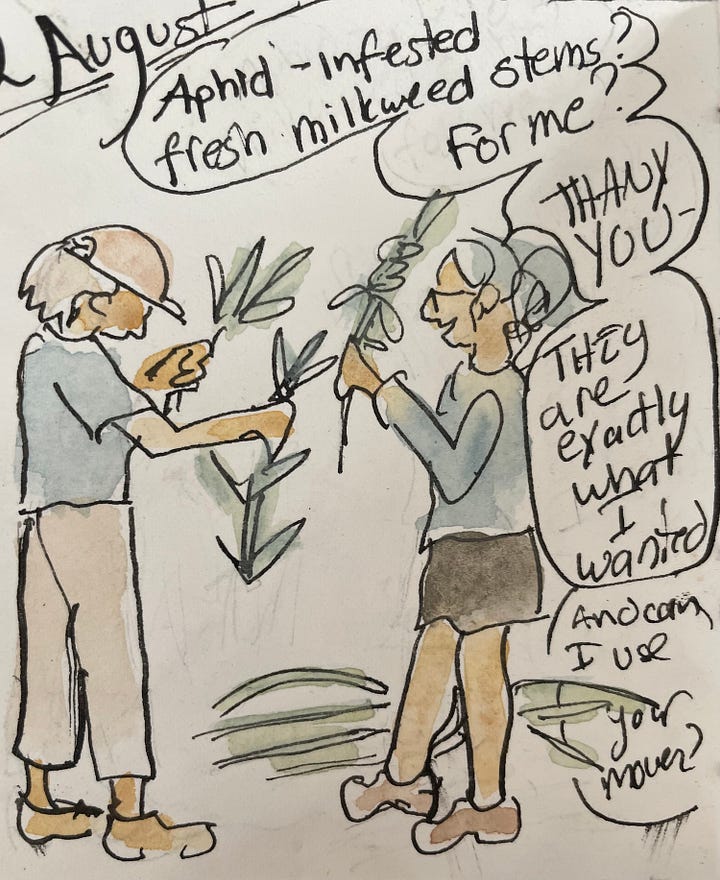 2 August
Aphid-infested
fresh milkweed stems?
For me?
THANK
YOU-
THEY
are
exactly
what
I
wanted
And can
I use
your
mower?